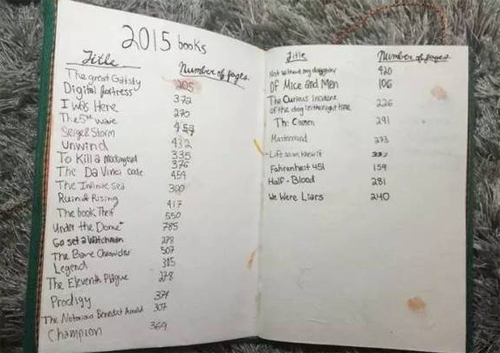 2015 books
Title Number of pages
The great Gatsby 205
Digital fortress 372
I was Here 270
The 5th wave 457
Seige & Storm 432
Unwind 335
To Kill a Mockingbird 376
The Da Vinci code 454
The Infinite sea 300
Ruin & Rising 417
The book Thief 550
Under the Dome
785
Go set a Watchman 278
The Bane Chronicles 507
Legend 315
The Eleventh Plague 278
Prodigy 371
The Notorious Benedict Arnold 307
Champion 369
Title Number of pages
Not without my daughter 420
Of Mice and Men 106
The Curious Incident
of the dog in the night time 226
The Chosen 291
Mastermind 273
Life as we Knew it
Fahrenheit 451 159
Half-Blood 281
We Were Liars 240